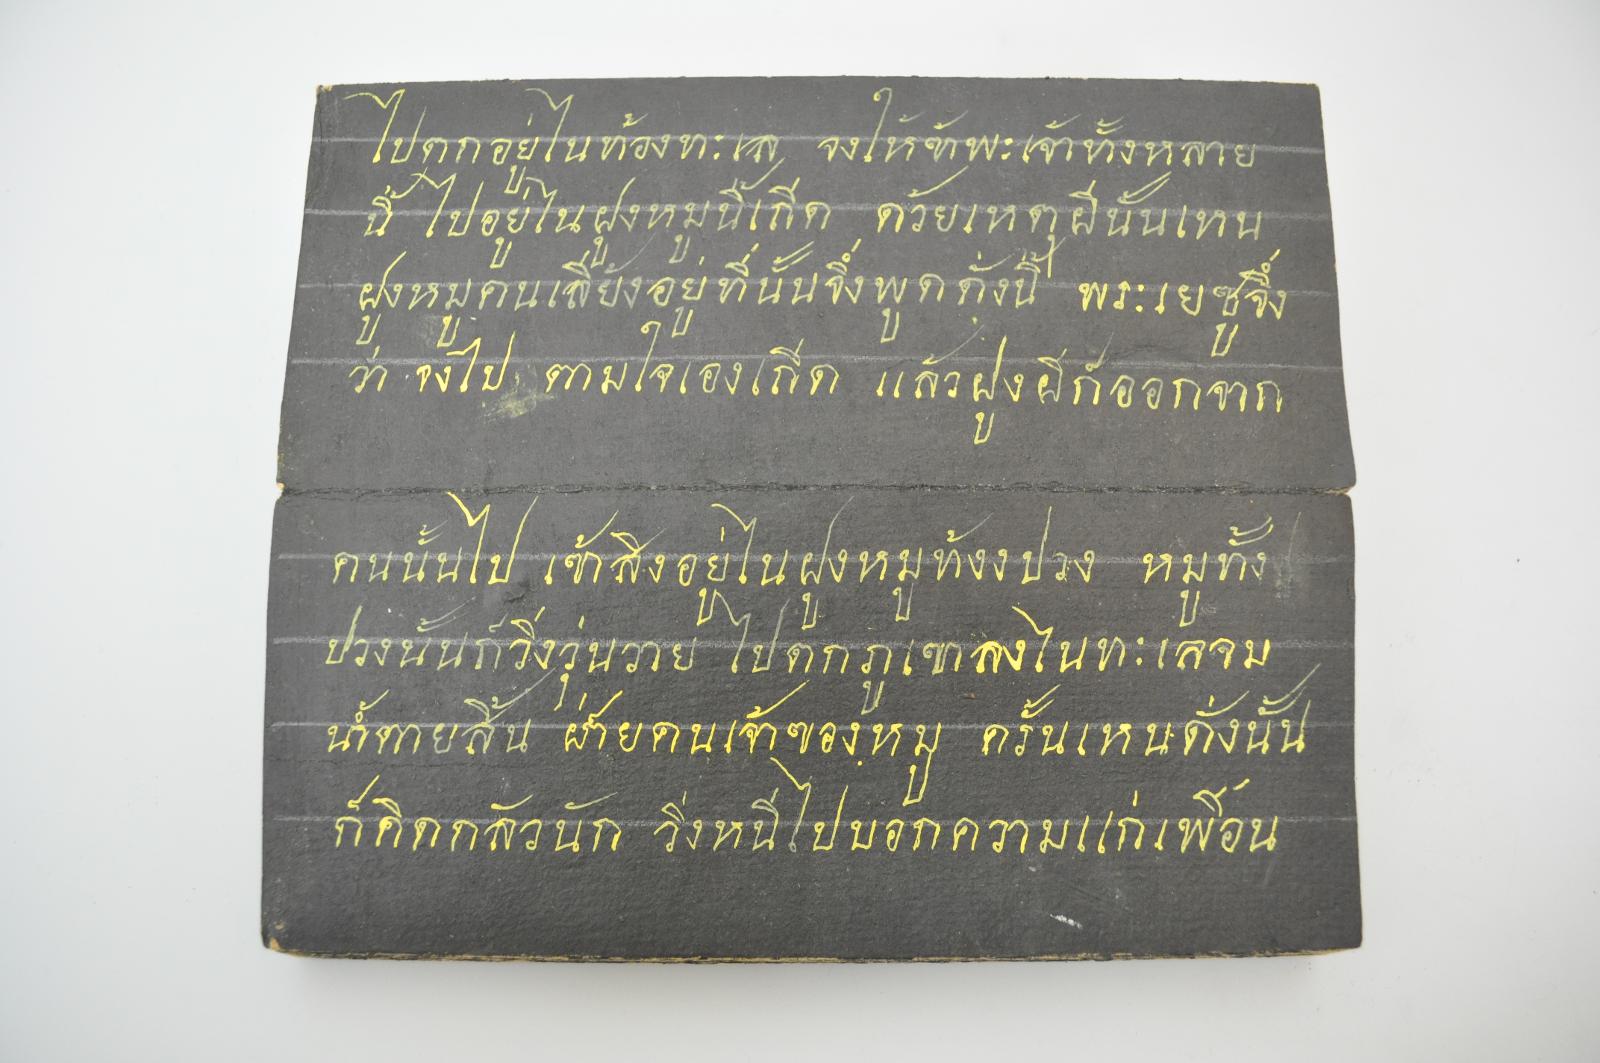 ไปตกอยู่ไนท้องทะเล จงให้ข้าพะเจ้าทั้งหลาย
นี้ ไปอยู่ไนฝูงหมูนี้เถีด ด้วยเหตุผีนั้นเหน
ฝูงหมูคนเลี้ยงอยู่ที่นั้นจึ่งพูดดั่งนี้ พระเยซูจึ่ง
ว่า จงไป ตามใจเองเถีด แล้วฝูงผีก็ออกจาก
คนนั้นไป เข้าสิงอยู่ไนฝูงหมูท้งงปวง หมูทั้ง
ปวงนั้นก็วิ่งวุ่นวาย ไปตกภูเขาลงไนทะเลจม
น้ำตายสิ้น ฝ่ายคนเจ้าของหมู ครั้นเหนดั่งนั้น
ก็คิดกลัวนัก วิ่งหนีไปบอกความแก่เพื่อน